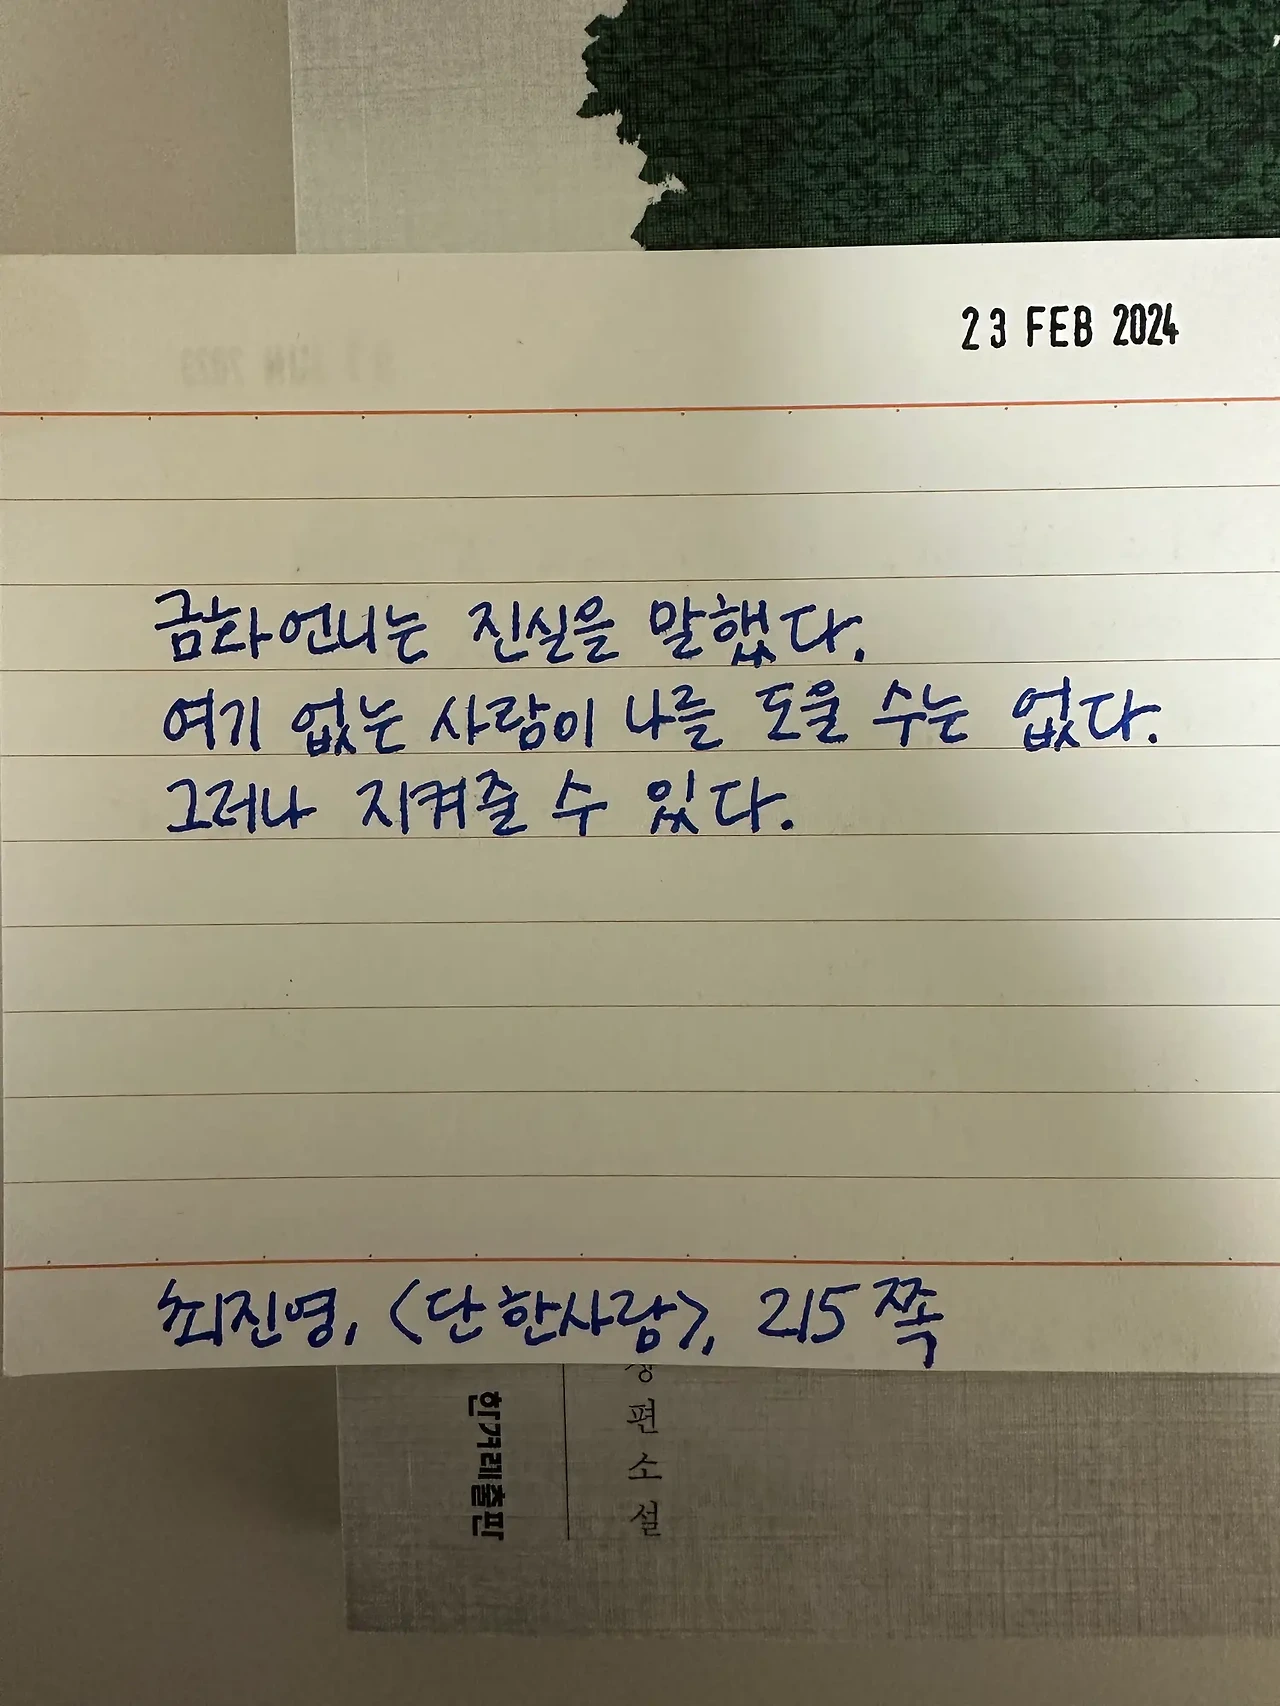 23 FEB 2024
금화언니는 진실을 말했다.
여기 없는 사람이 나를 도울 수는 없다.
그러나 지켜줄 수 있다.
최진영, <단 한사람>, 215쪽
한겨레출판
편소설